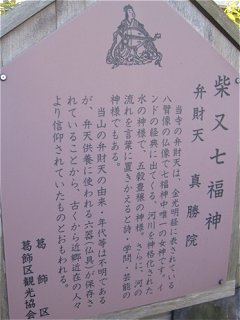 柴又七福神
弁財天　真勝院
当寺の弁財天は、金光明経に表されている
八臂像の仏像で七福神中唯一の女神です。イ
ンドの経典に出てくる、河川を神格化された
水の神様で、五穀豊穣の神様。さらに、河の
流れを言葉に置きかえると詩、学問、芸能の
神様でもある。
当山の弁財天の由来・年代等は不明である
が、弁天供養に使われる六器(仏具)が保存さ
れていることから、古くから近郷近在の人々
より信仰されていたものとおもわれる。
葛飾区
葛飾区観光協会